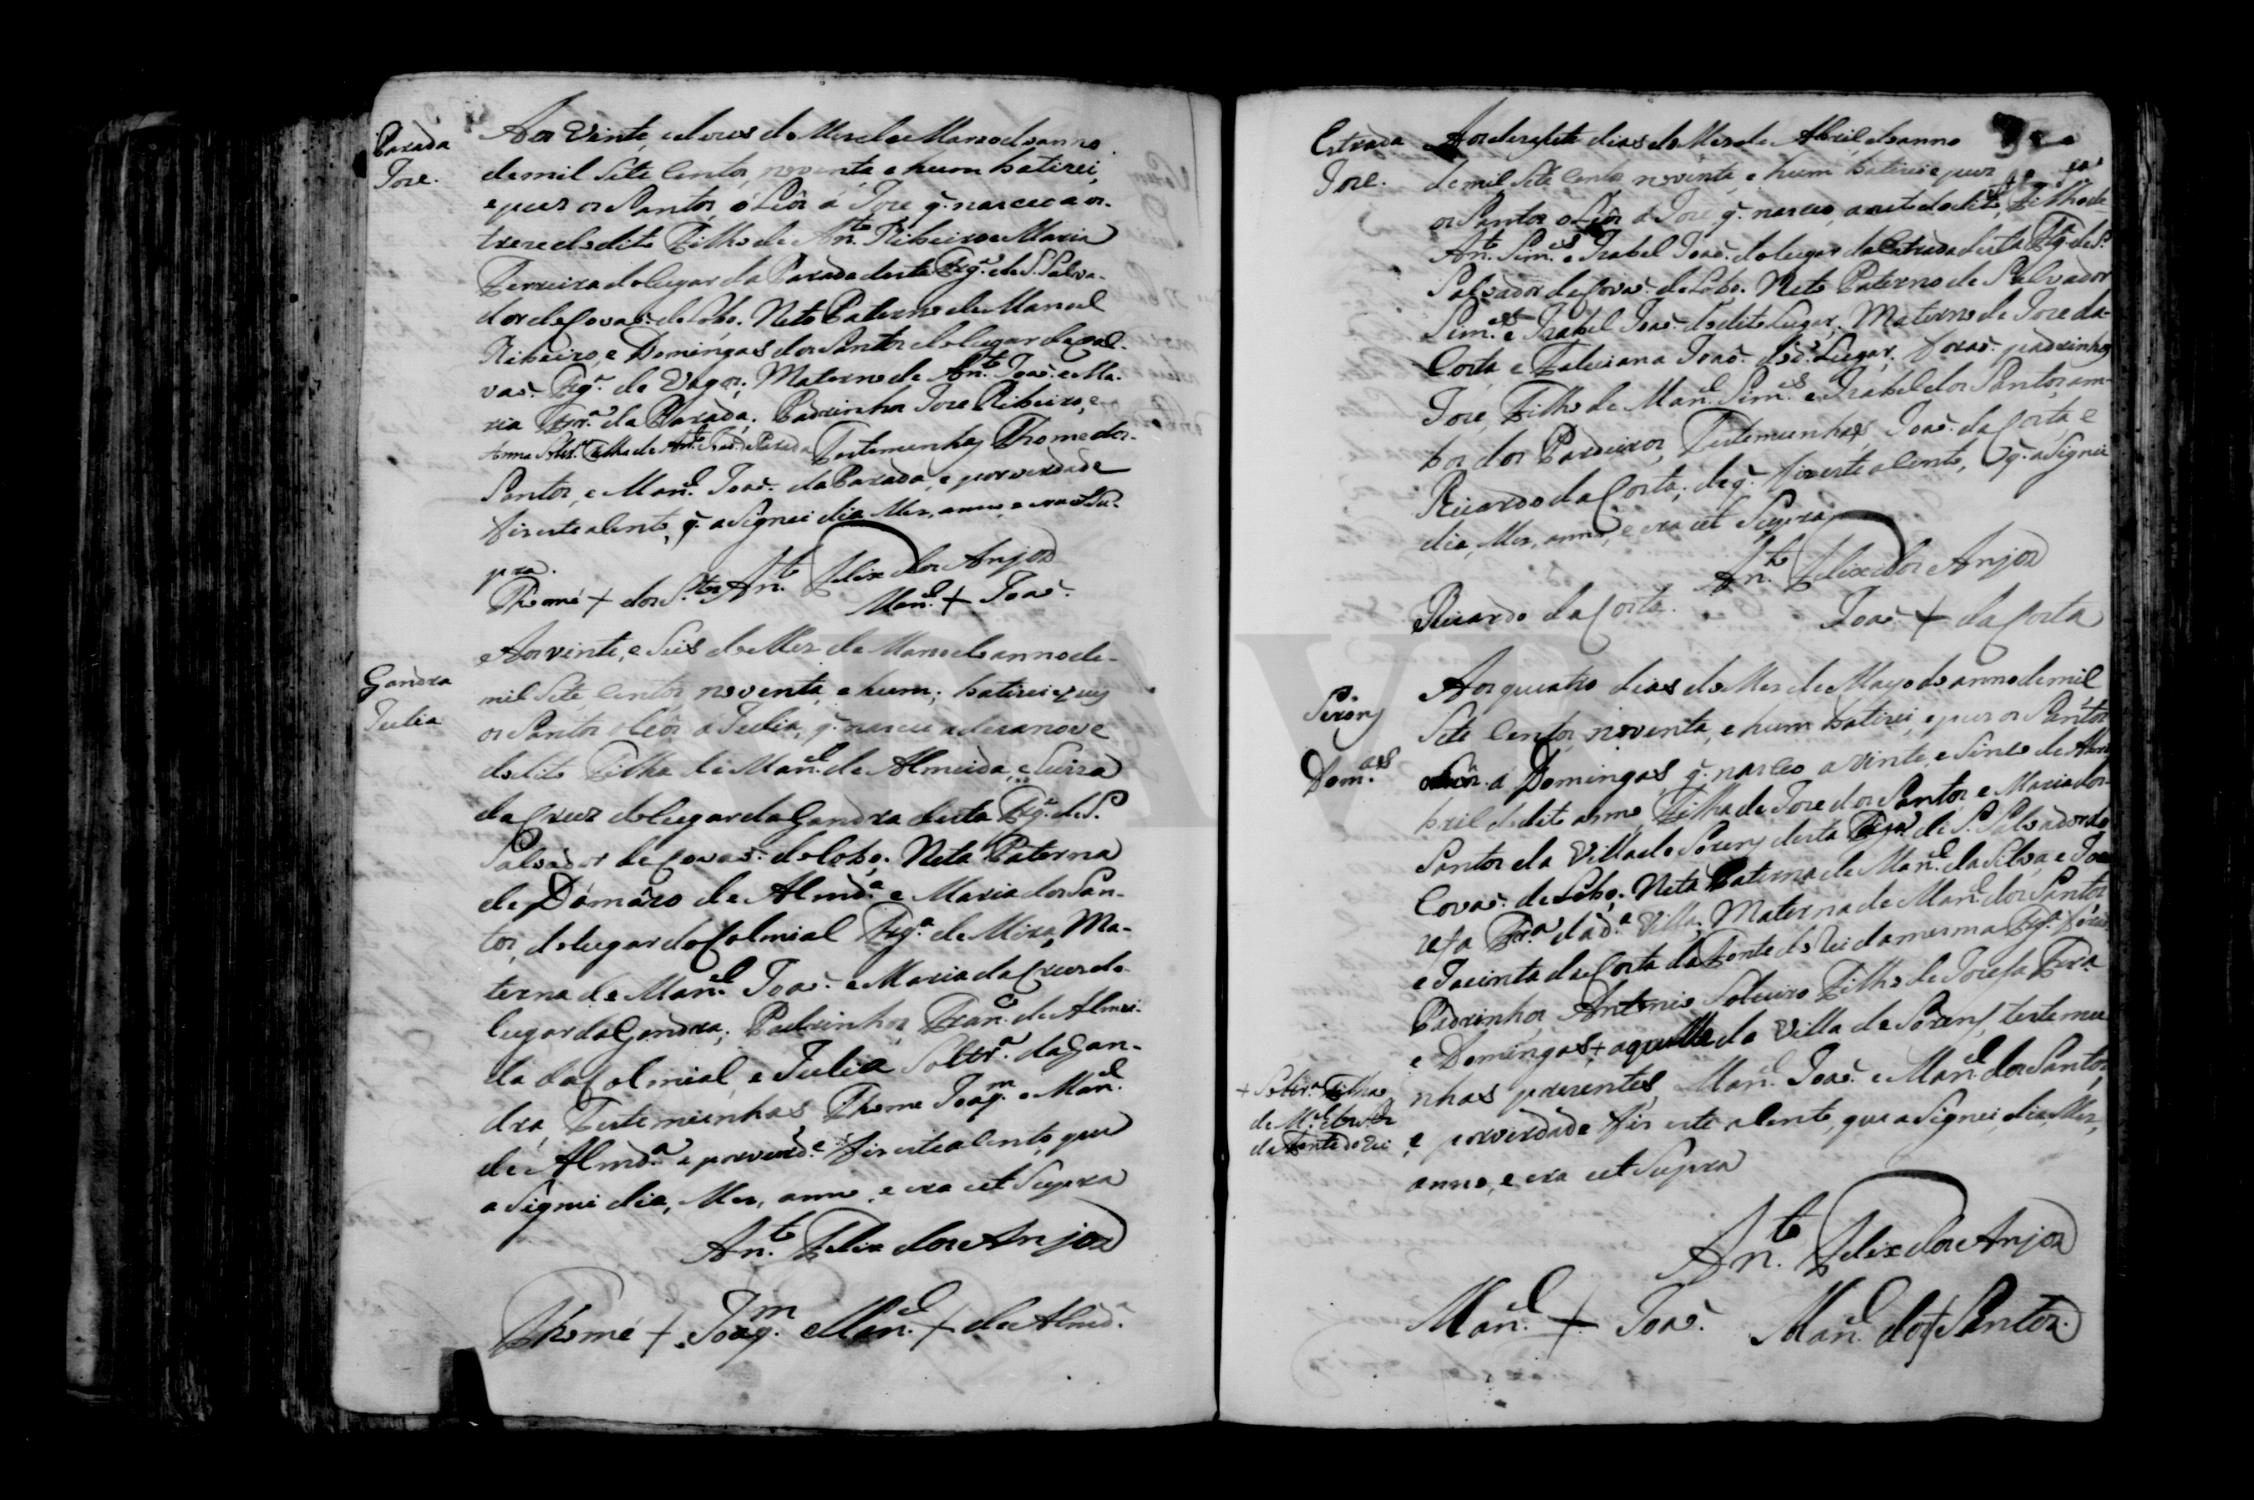 Parada
Joze.
Aos vinte, e dous do Mes de Março do anno
de mil Sete Centos, noventa, e hum batizei,
e puz os Santos, óLeos á Joze q. nasceo aos
treze do dito Filho de An.to Ribeiro e Maria
Ferreira do lugar da Parada desta Frg.ª de S. Salva-
dor de Covas. do Lobo. Neto Paterno de Manoel
Ribeiro, e Domingas dos Santos do lugar de
vas. Frg.ª de Vagos; Materno de An.to Joaõ. e Ma-
ria Frr.ª da Parada; Padrinhos Joze Ribeiro, e
Anna Filha de An.to Joaõ. da Parada Testemunhas Thome dos
Santos, e Man.el Joaõ. da Parada, e por verdade
fiz este aSento, q. aSignei dia Mes, anno, e era ut Su-
pra.
An.to Felix dos Anjos
Thomé + dos S.tos Man.el + Joaõ.
Gandra
Julia
Aos vinte, e Seis do Mes de Março do anno de
mil Sete, Centos, noventa, e hum; batizei e puz
os Santos oLeos a Julia, q. nasceu a dezanove
do dito Filha de Man.el de Almeida, e Luiza
da Cruz do lugar da Gandra desta Frg.ª de S.
Salvador de Covas. do Lobo; Neta Paterna
de Dâmâzo de Almd.ª e Maria dos San-
tos, do lugar do Colmial Frg.ª de Mira, Ma-
terna de Man.el Joaõ. e Maria da Cruz do
lugar da Gandra; Padrinhos Fran.co de Almei-
da do Colmial, e Julia Soltr.ª da Gan-
dra, Testemunhas Thome Joaq.m e Man.el
de Almd.ª e por verd.e fiz este aSento, que
aSignei dia, Mes, anno, e era ut Supra
An.to Felix dos Anjos
Thomé + Joaq.m Man.el + de Almd.ª
Estrada
Joze.
Aos dezasete dias do Mes de Abril do anno
de mil Sete Centos noventa, e hum batizei e puz
os Santos oLeos á Joze q. nasceo, a sete do dito, Filho de
An.to Sim.es e Izabel Joaõ. do lugar da Estrada desta Frg.ª de S.
Salvador de Covas. do Lobo. Neto Paterno de Salvador
Sim.es e Izabel Joaõ. do dito Lugar; Materno de Joze da
Costa e Feliciana Joaõ. do d.º Lugar; foraõ. padrinhos
Joze, Filho de Man.el Sim.es e Izabel dos Santos, am-
bos dos Pardeiros, Testemunhas, Joaõ. da Costa, e
Ricardo da Costa; de q. fiz este aSento, q. aSignei
dia, Mes, anno, e era ut Supra
An.to Felix dos Anjos
Ricardo da Costa. Joaõ. + da Costa
Sozens
Dom.as
Aos quatro dias do Mes de Mayo do anno de mil
Sete Centos noventa, e hum batizei, e puz os Santos
oLeos. á Domingas, q. nasceo a vinte, e Sinco de A
bril do dito anno, Filha de Joze dos Santos, e Maria dos
Santos da Villa de Sozens desta Frg.ª de S. Salvador de
Covas. do Lobo. Neta Paterna de Man.el da Silva, e Jo
zefa Frr.ª da d.ª Villa; Materna de Man.el dos Santos
e Jacinta da Costa da Fonte do Rei da mesma Frg.ª foraõ
Padrinhos, Antonio Solteiro Filho de Jozefa Frr.ª
e Domingas + aquelle da Villa de Sozens, testemu
nhas prezentes, Man.el Joaõ. e Man.el dos Santos,
+ Soltr.ª Filha
de M.el dos
da Fonte do Rei
e, por verdade fiz este aSento, que aSignei, dia, Mes,
anno, e era ut Supra
An.to Felix dos Anjos
Man.el + Joaõ. Man.el do + Santos.